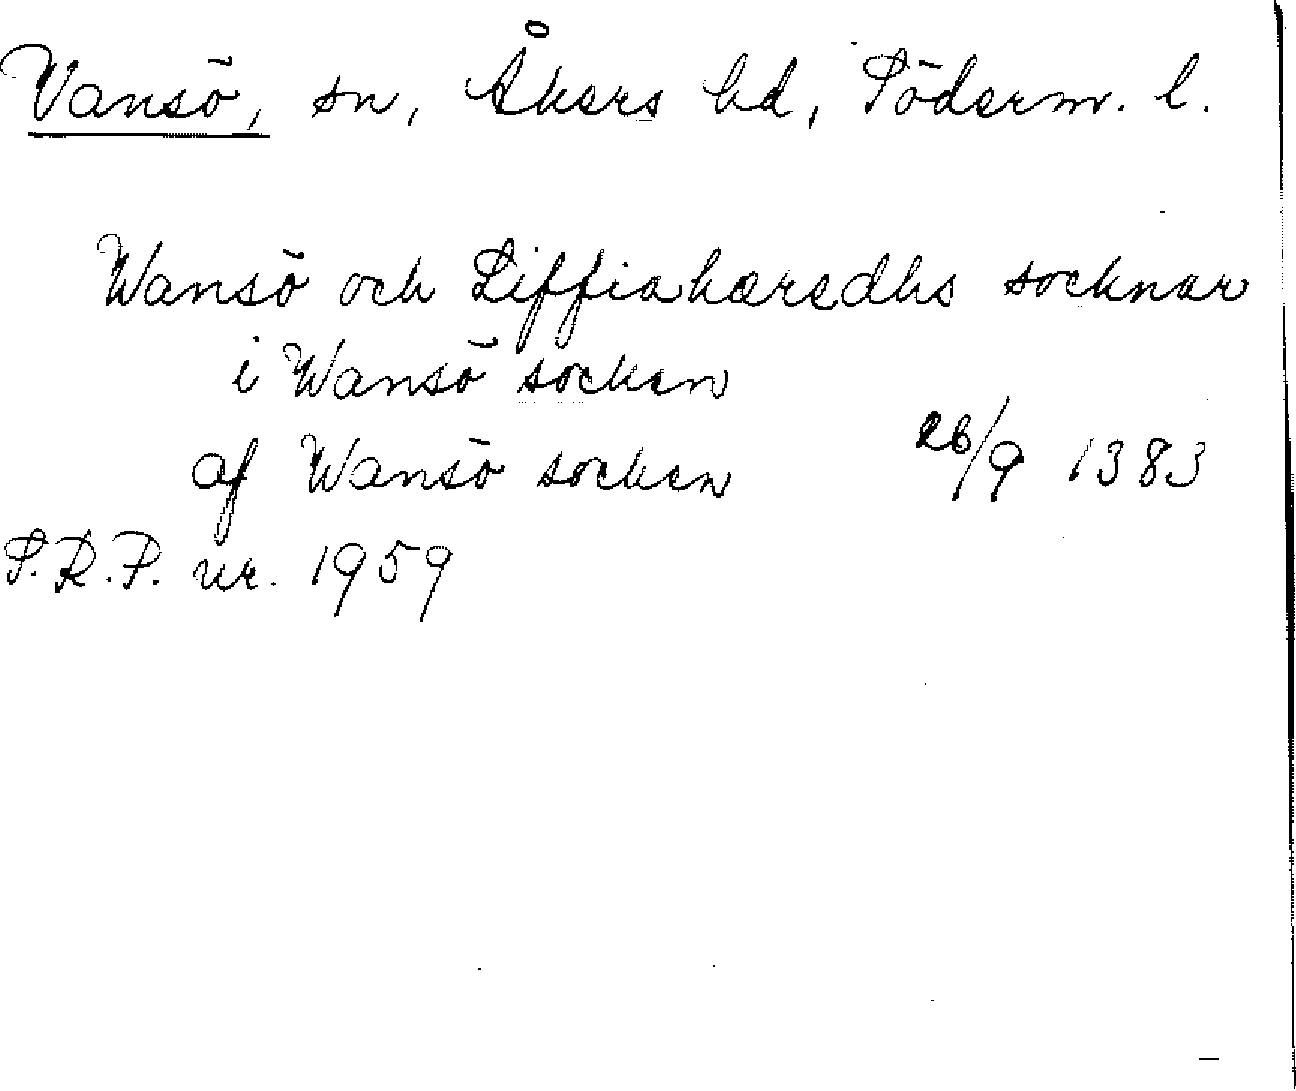 Vansö, sn, Åkers hd, Söderm. l.
Wansö och Liffiahæredhs socknar
i Wansö socken
af Wansö socken 26/9 1383
S.R.P. nr. 1959